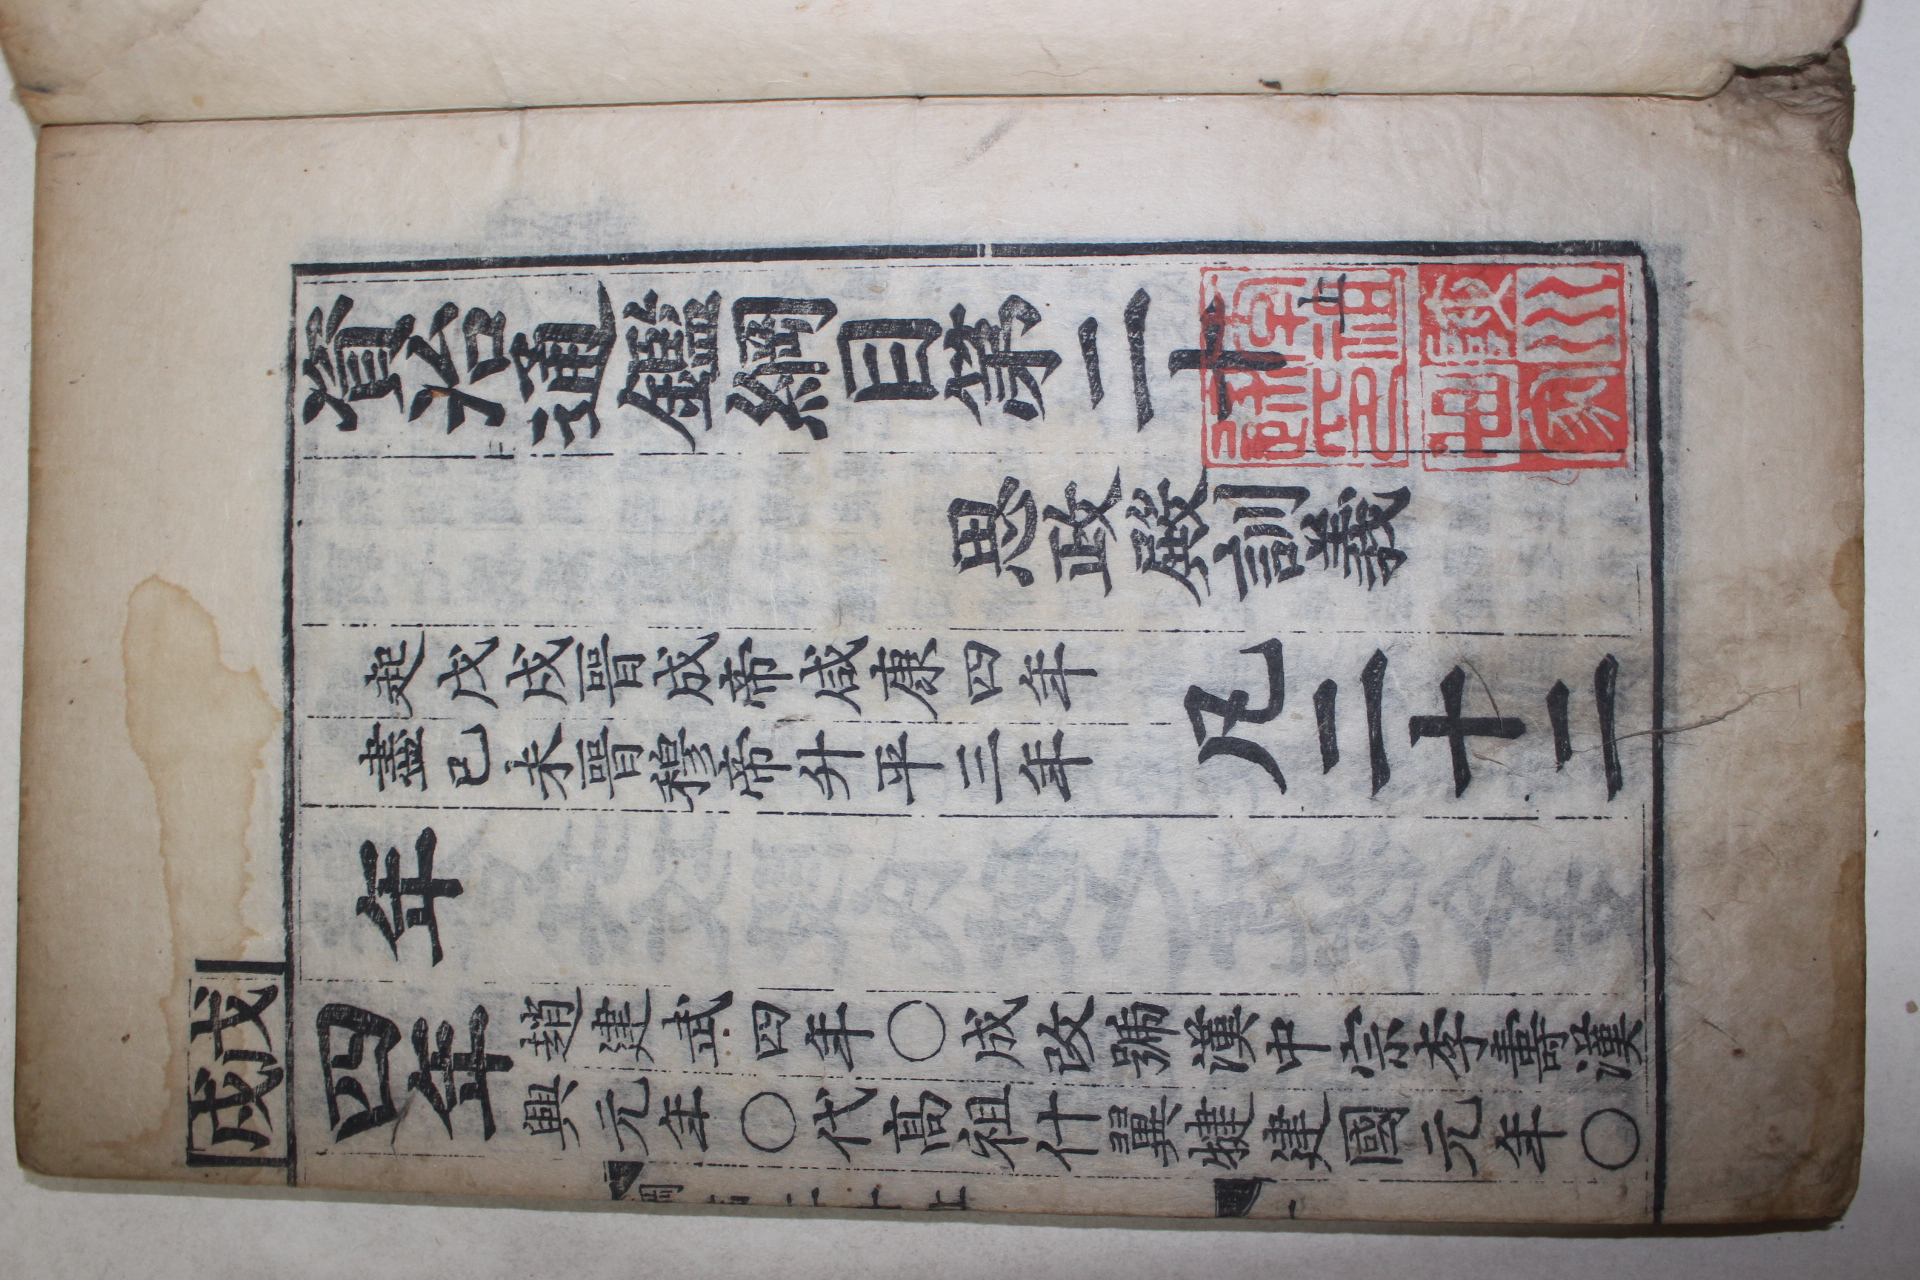 資治通鑑綱目第二十上
思政殿訓義
起戊戌晉成帝咸康四年
盡己未晉穆帝升平三年
凡二十二
年
戊戌
四年
趙建武四年○成改號漢中宗李壽漢
興元年○代高祖什翼犍建國元年○